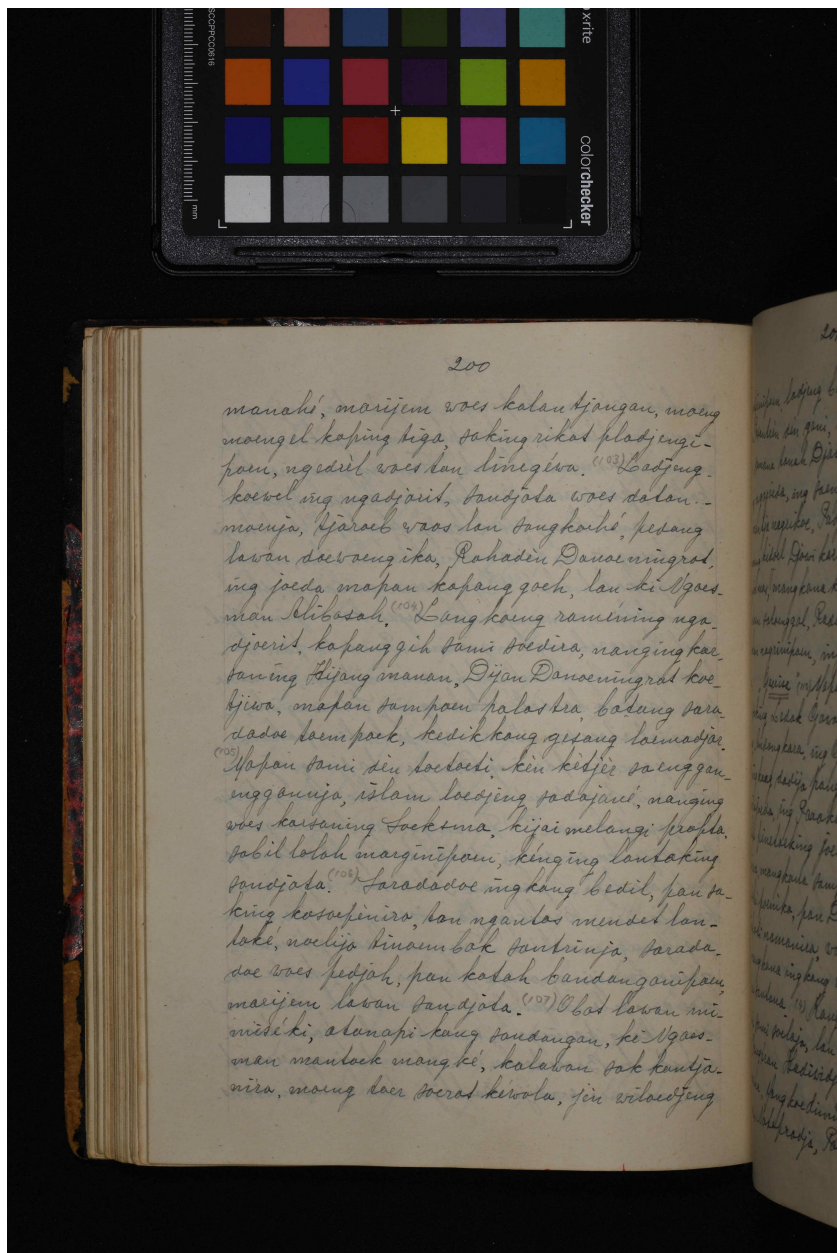 SCCPPCC0616
x-rite
colorchecker
mm
200
manahé, marijem woes kalan tjangan, moeng
moengel kaping tiga, saking rikat pladjengi-
poen, ngedrèl woes tan linegéwa. (103) Ladjeng
koewel ing ngadjoerit, sandjata woes datan
moenja, tjaroeb waos lan sangkoehé, pedang
lawan doewoeng ika, Rahadèn Danoeningrat,
ing joeda mapan kapang goeh, lan ki Ngoes-
man Alibasah. (104) Langkoeng raméning nga-
djoerit, kapanggih sami soedira, nanging kar-
saning Hijang manan, Dijan Danoeningrat koe-
tjiwa, mapan sampoen palastra, batang sara-
dadoe toempoek, kedik kang gesang loemadjar.
(105) Mapan sami dèn toetoeti, kèn kètjèr sa enggan-
enggannja, islam loedjeng sadajané, nanging
woes karsaning Soeksma, kijai melangi prapta,
sabil lolah marginipoen, kénging lantaking
sandjata. (106) Saradadoe ingkang bedil, pan sa-
king kasoepènira, tan ngantos mendet lan-
také, noelija tinoembak santrinja, sarada-
doe woes pedjah, pan katah bandanganipoen,
marijem lawan sandjata. (107) Obat lawan mi-
miséki, atanapi kang sandangan, ki Ngoes-
man mantoek mangké, kalawan sak kantja-
nira, moeng toer soerat kéwala, jèn wiloedjeng